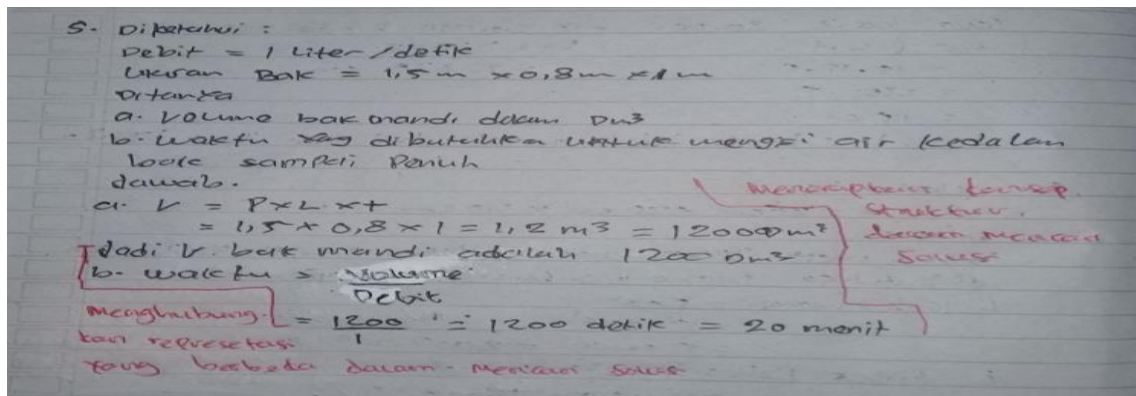 5. Diketahui :
Debit = 1 Liter/detik
Ukuran Bak = 1,5 m x 0,8 m x 1 m
Ditanya
a. Volume bak mandi dalam Dm³
b. waktu yag dibutuhkan untuk mengisi air kedalam
bak sampai Penuh
Jawab.
a. V = P x L x t
= 1,5 x 0,8 x 1 = 1,2 m³ = 1200
Jadi V. bak mandi adalah 1200 Dm³
b. waktu = Volume
Debit
= 1200 = 1200 detik = 20 menit
1
konsep
struktur
dalam mencari
solusi
Menghubung-
kan
yang berbeda dalam mencari solusi